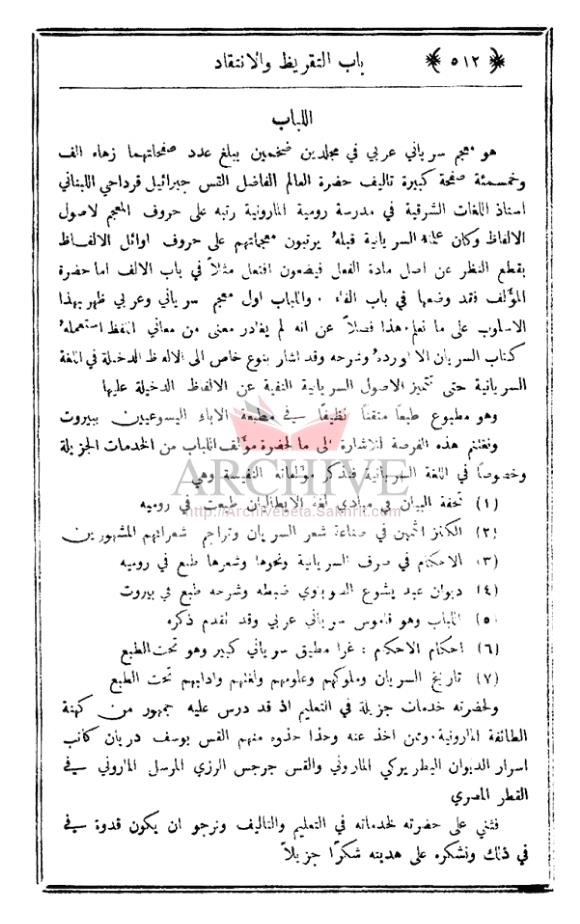 ﴿ ٥١٢ ﴾ باب التقريظ والانتقاد
اللباب
هو معجم سرياني عربي في مجلدين ضخمين يبلغ عدد صفحاتهما زهاء الف
وخمسمئة صفحة كبيرة تاليف حضرة العالم الفاضل القس جبرائيل قرداحي اللبناني
استاذ اللغات الشرقية في مدرسة رومية المارونية رتبه على حروف المعجم لاصول
الالفاظ وكان علماء السريانية قبلهُ يرتبون معجماتهم على حروف اوائل الالفاظ
بقطع النظر عن اصل مادة الفعل فيضعون افتعل مثلاً في باب الالف اما حضرة
المؤلف فقد وضعها في باب الفاء . واللباب اول معجم سرياني وعربي ظهر بهذا
الاسلوب على ما نعلم. هذا فضلاً عن انه لم يغادر معنى من معاني اللفظ استعملهُ
كتاب السريان الا اوردهُ وشرحه وقد اشار بنوع خاص الى الالفاظ الدخيلة في اللغة
السريانية حتى تتميز الاصول السريانية النقية عن الالفاظ الدخيلة عليها
وهو مطبوع طبعًا متقنًا نظيفًا في مطبعة الاباء اليسوعيين ببيروت
ونغتنم هذه الفرصة للاشارة الى ما لحضرة مؤلف اللباب من الخدمات الجزيلة
وخصوصاً في اللغة السريانية فنذكر مؤلفاته النفيسة وهي
ARCHIVE
http://Archivebeta.Sakhrit.com
(١) تحفة البيان في مبادي لغة الايطاليان طبعت في روميه
(٢) الكنز الثمين في صناعة شعر السريان وتراجم شعرائهم المشهورين
(٣) الاحكام في صرف السريانية ونحوها وشعرها طبع في روميه
(٤) ديوان عبد يشوع الصوباوي ضبطه وشرحه طبع في بيروت
(٥) اللباب وهو قاموس سرياني عربي وقد تقدم ذكره
(٦) احكام الاحكام : غراماطيق سرياني كبير وهو تحت الطبع
(٧) تاريخ السريان وملوكهم وعلومهم ولغتهم وادابهم تحت الطبع
ولحضرته خدمات جزيلة في التعليم اذ قد درس عليه جمهور من كهنة
الطائفة المارونية. وممن اخذ عنه وحذا حذوه منهم القس يوسف دريان كاتب
اسرار الديوان البطريركي الماروني والقس جرجس الرزي المرسل الماروني في
القطر المصري
فنثني على حضرته لخدماته في التعليم والتاليف ونرجو ان يكون قدوة في
في ذلك ونشكره على هديته شكرًا جزيلاً